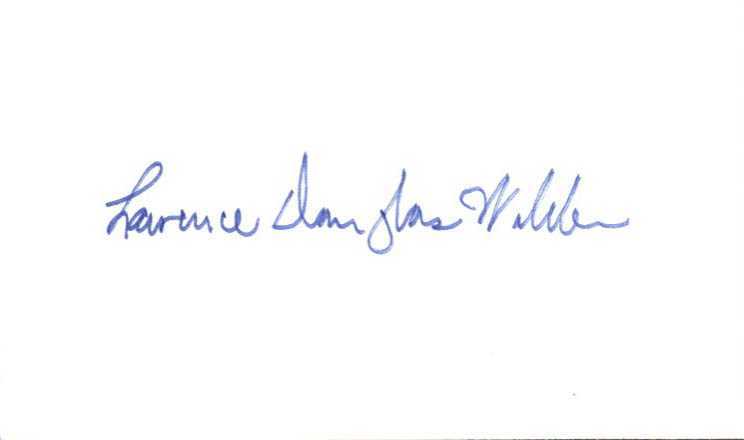 Lawrence Douglas Wilder